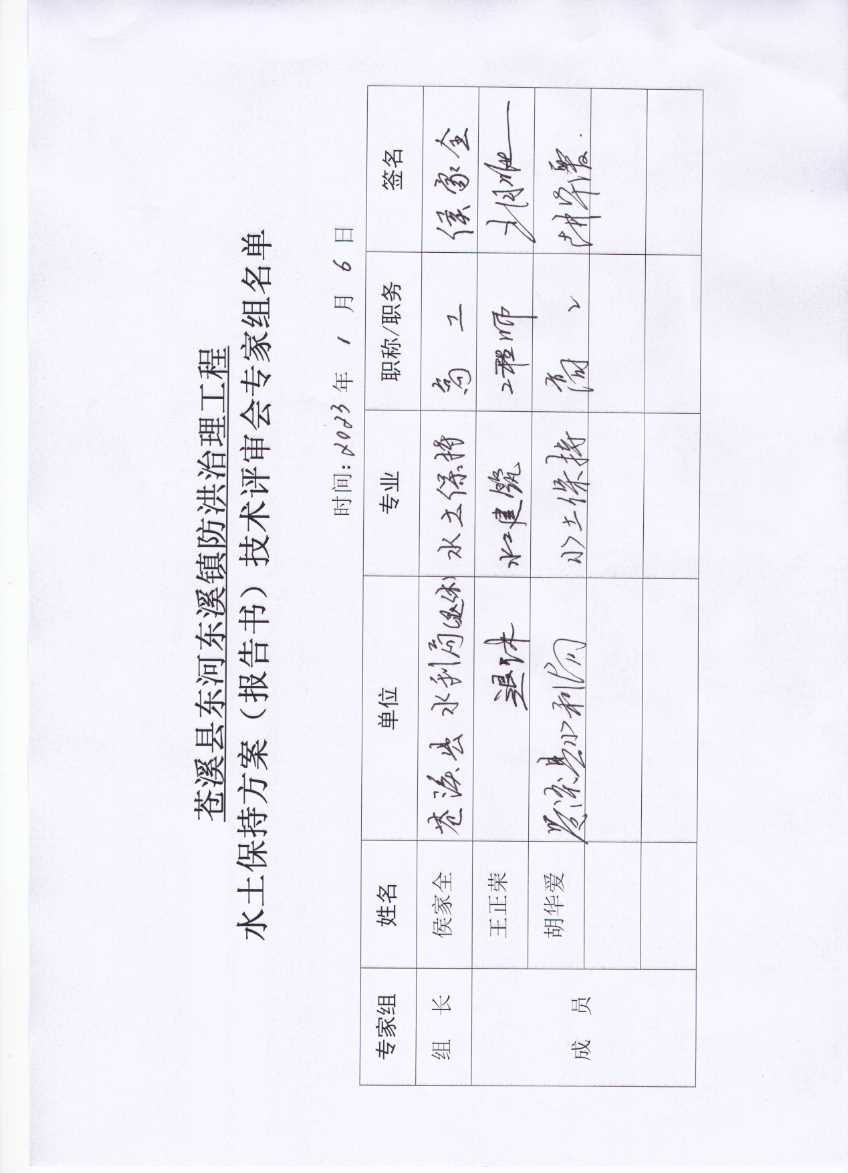 苍溪县东河东溪镇防洪治理工程
水土保持方案（报告书）技术评审会专家组名单
时间：2023年 1 月 6 日
专家组 姓名 单位 专业 职称/职务 签名
组 长 侯家全 苍溪县水利局(退休) 水土保持 高工 侯家全
成 员 王正荣 退休 水工建筑 工程师
胡华爱 苍溪县水利局 水土保持 高工 胡华爱